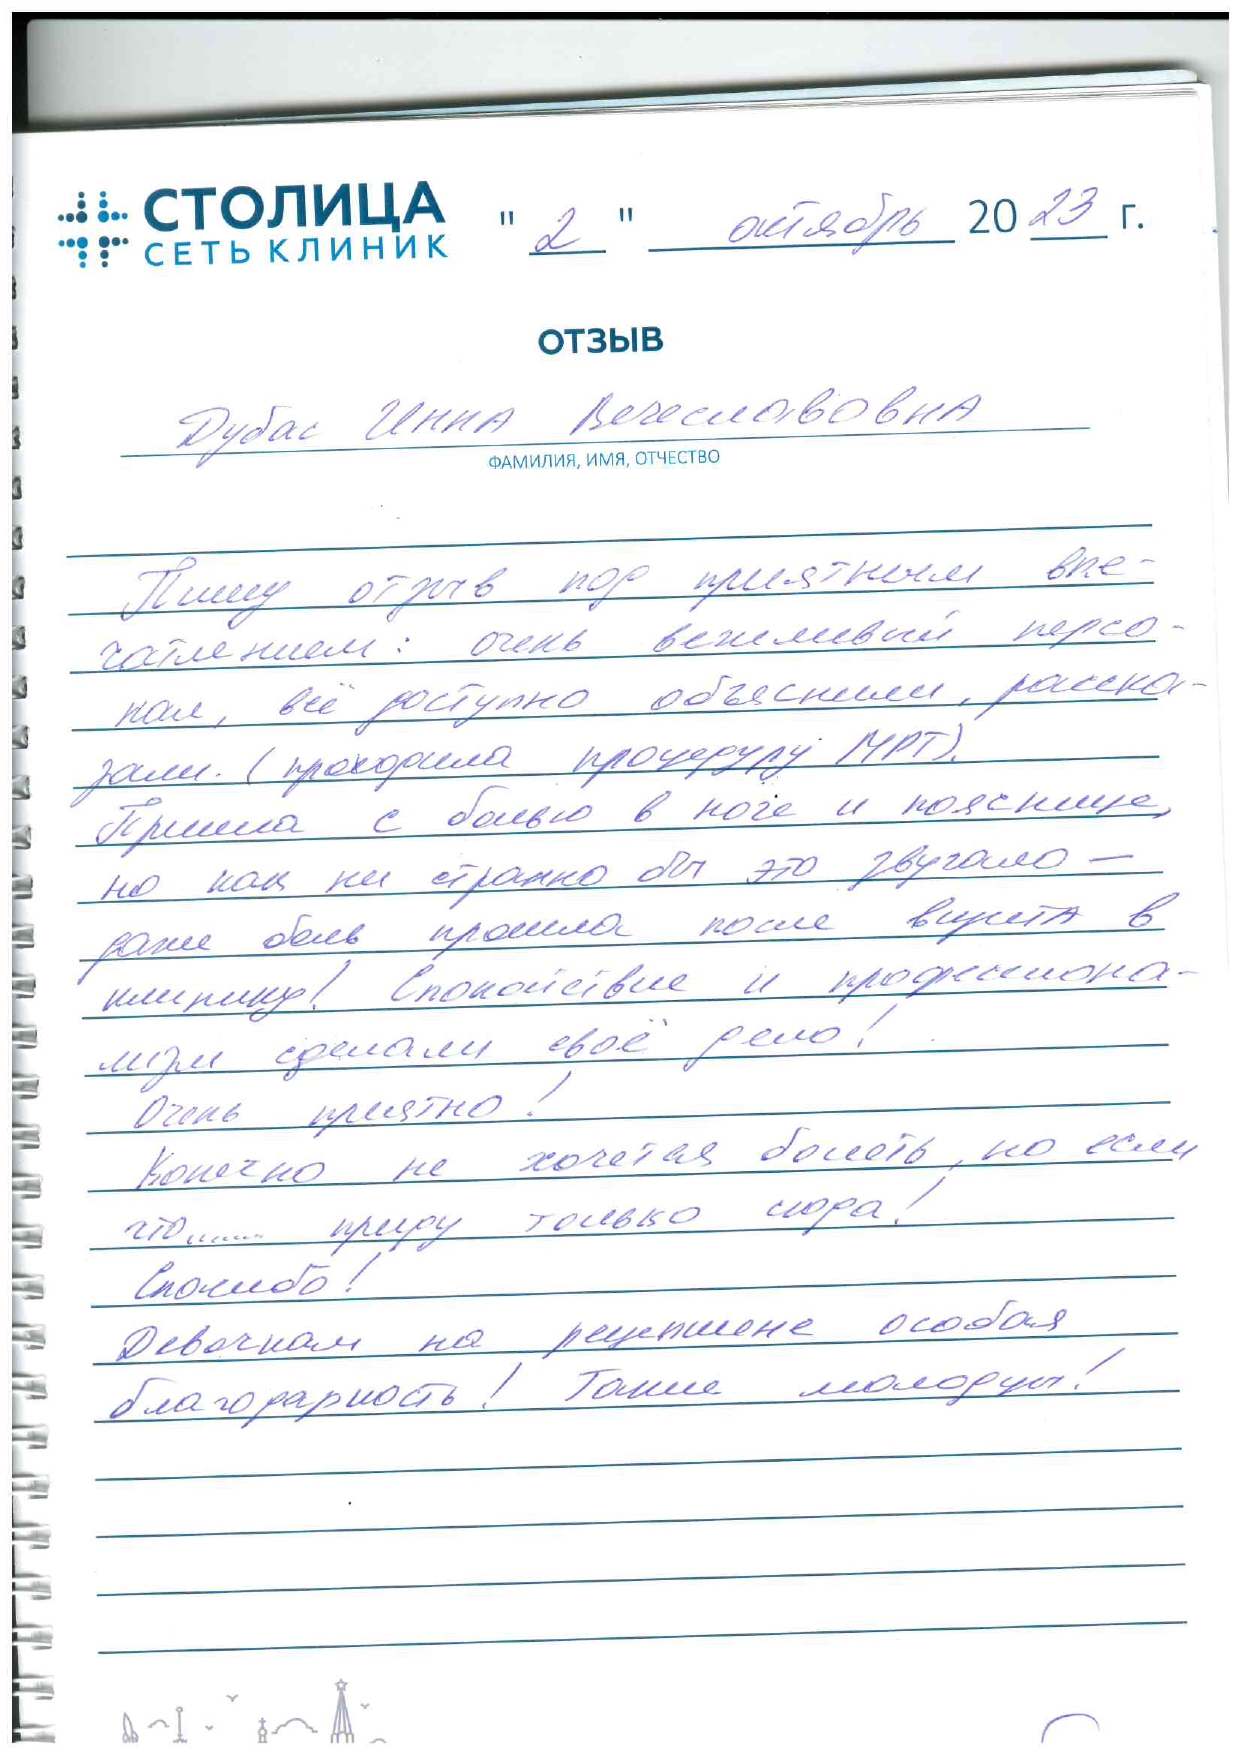 СТОЛИЦА
СЕТЬ КЛИНИК
" 2 " октябрь 20 23 г.
ОТЗЫВ
Дубас Инна Вечеславовна
ФАМИЛИЯ, ИМЯ, ОТЧЕСТВО
Пишу отзыв под приятным впе-
чатлением: очень вежливый персо-
нал, всё доступно объяснили, расска-
зали. (проходила процедуру МРТ).
Пришла с болью в ноге и пояснице,
но как ни странно бы это звучало —
даже боль прошла после визита в
клинику! Спокойствие и профессиона-
лизм сделали своё дело!
Очень приятно!
Конечно не хочется болеть, но если
что...... приду только сюда!
Спасибо!
Девочкам на рецепшене особая
благодарность! Такие молодцы!